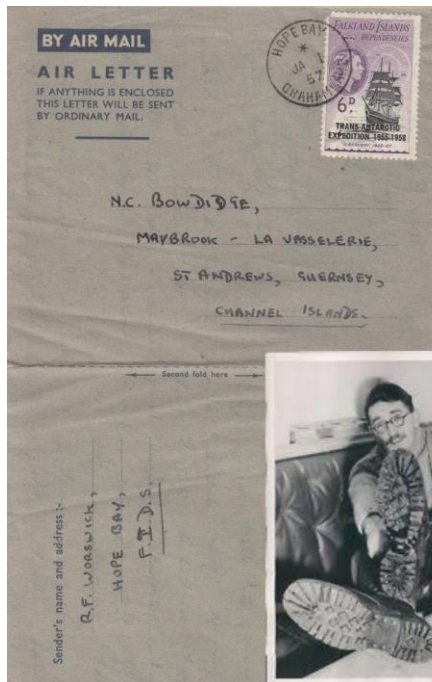 BY AIR MAIL
AIR LETTER
IF ANYTHING IS ENCLOSED
THIS LETTER WILL BE SENT
BY ORDINARY MAIL.
HOPE BAY
*
JA 1
57
GRAHAM LAND
FALKLAND ISLANDS
DEPENDENCIES
6D
TRANS-ANTARCTIC
EXPEDITION 1955-1958
N.C. BOWDIDGE,
MAYBROOK - LA VASSELERIE,
ST ANDREWS, GUERNSEY,
CHANNEL ISLANDS.
Second fold here
Sender's name and address:-
R.F. WORSWICK,
HOPE BAY,
F.I.D.S.